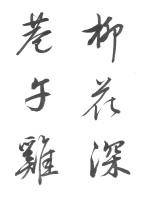 柳花深
巷午雞